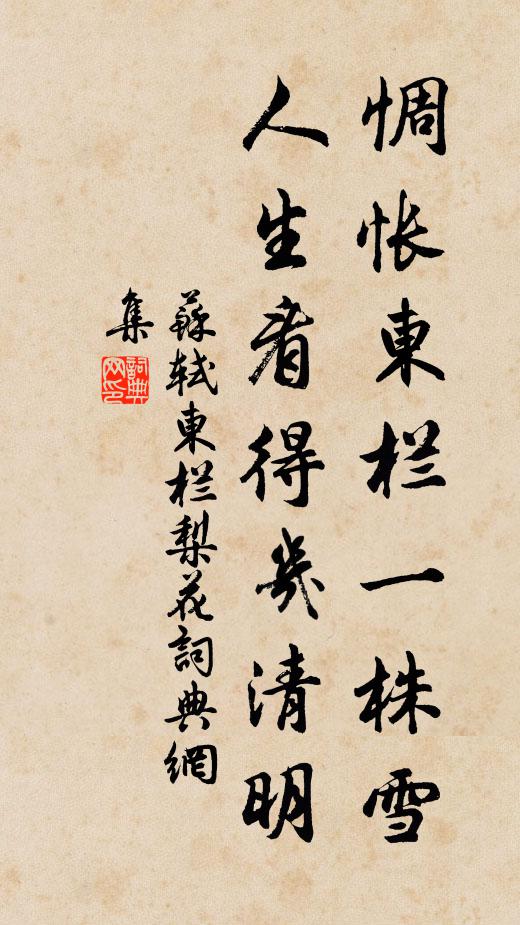 惆怅東栏一株雪
人生看得幾清明
蘇轼東栏梨花詞典網
集
詞典网印